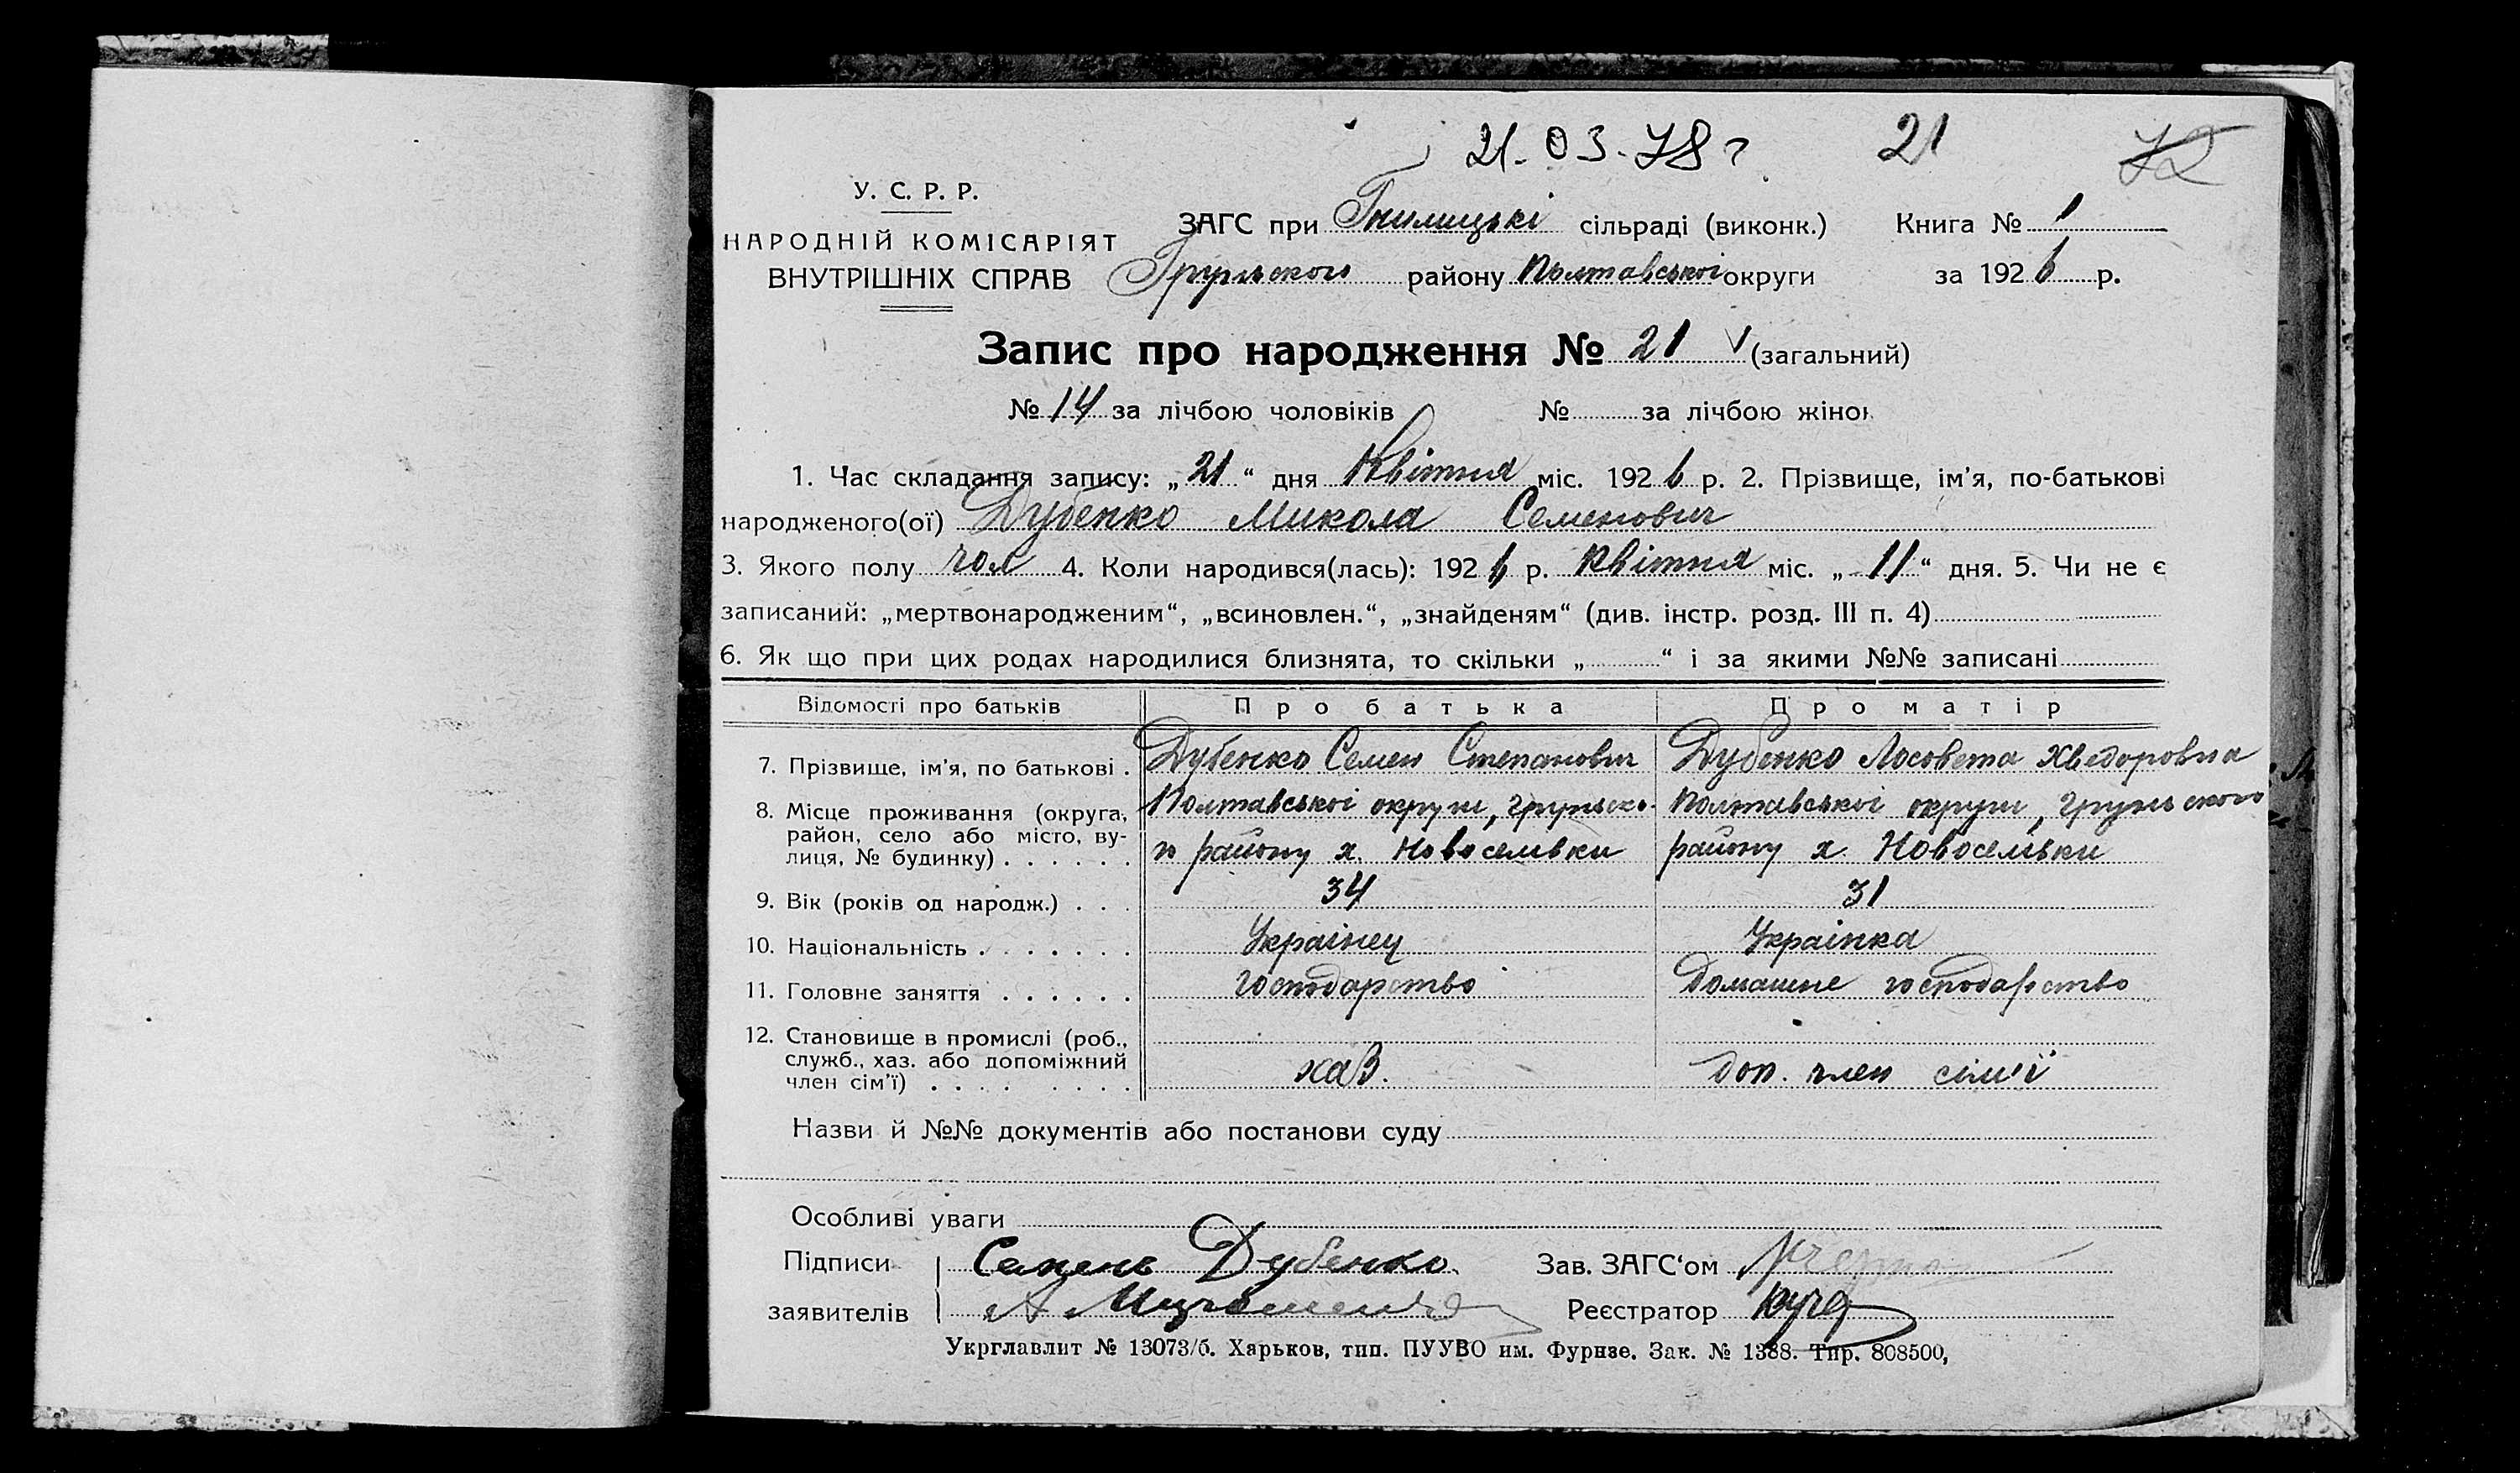 21.03.78 г 21 72
У. С. Р. Р.
НАРОДНІЙ КОМІСАРІЯТ
ВНУТРІШНІХ СПРАВ
ЗАГС при Гнилицькі сільраді (виконк.) Книга № 1
Грунського району Полтавської округи за 1926 р.
Запис про народження № 21 (загальний)
№ 14 за лічбою чоловіків № за лічбою жінок
1. Час складання запису: „21“ дня Квітня міс. 1926 р. 2. Прізвище, ім'я, по-батькові
народженого(ої) Дубенко Микола Семенович
3. Якого полу чол 4. Коли народився(лась): 1926 р. Квітня міс. „11“ дня. 5. Чи не є
записаний: „мертвонародженим“, „всиновлен.“, „знайденям“ (див. інстр. розд. III п. 4)
6. Як що при цих родах народилися близнята, то скільки „ “ і за якими №№ записані
Відомості про батьків Про батька Про матір
7. Прізвище, ім'я, по батькові . Дубенко Семен Степанович Дубенко Лосовета Хведоровна
8. Місце проживання (округа, Полтавської округи, грунсько- Полтавської округи, грунського
район, село або місто, ву-
лиця, № будинку) . . . . . . го району х. Новоселівки району х. Новоселівки
9. Вік (років од народж.) . . . 34 31
10. Національність . . . . . . . Українец Українка
11. Головне заняття . . . . . . господарство Домашне господарство
12. Становище в промислі (роб.,
служб., хаз. або допоміжний
член сім'ї) . . . . . . . . . хаз. доп. член сім'ї
Назви й №№ документів або постанови суду
Особливі уваги
Підписи Семень Дубенко. Зав. ЗАГС‘ом
заявителів А Реєстратор
Укрглавлит № 13073/б. Харьков, тип. ПУУВО им. Фрунзе. Зак. № 1388. Тир. 808500,